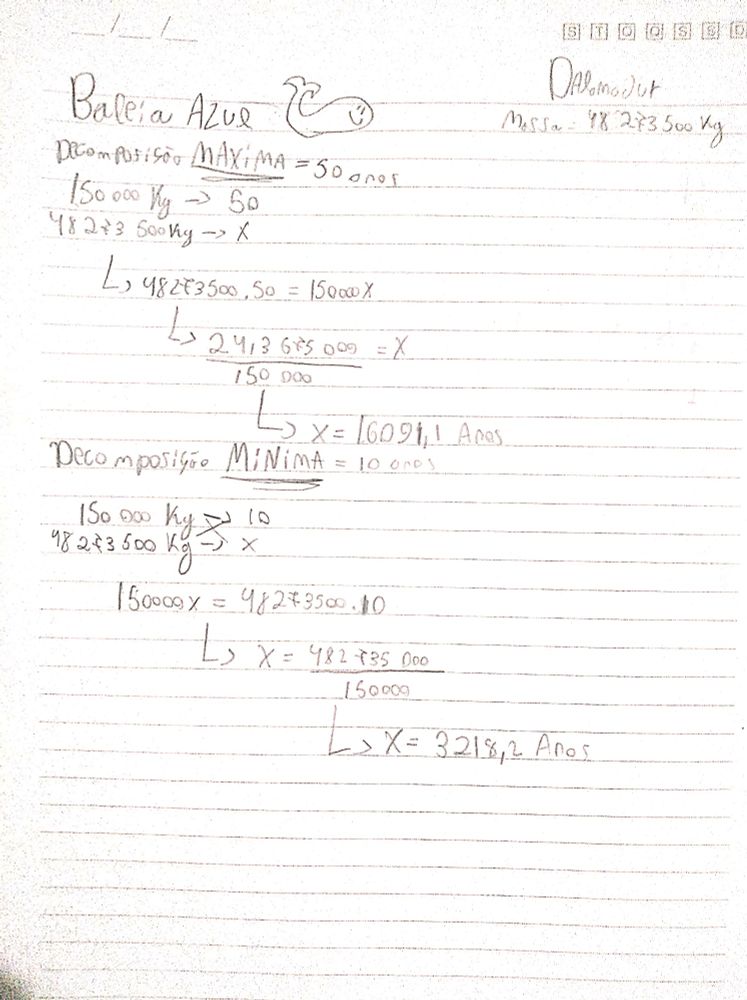 __/__/__
S T Q Q S S D
Dalamadur
Baleia Azul
Massa = 48 273 500 Kg
Decomposição MÁXIMA = 50 anos
150 000 Kg → 50
48 273 500 Kg → X
↳ 48273500.50 = 150000X
↳ 241 3 675 000 = X
150 000
↳ X = 16091,1 Anos
Decomposição MÍNIMA = 10 anos
150 000 Kg → 10
48 273 500 Kg → X
150000x = 48273500.10
↳ X = 482 735 000
150000
↳ X = 3218,2 Anos